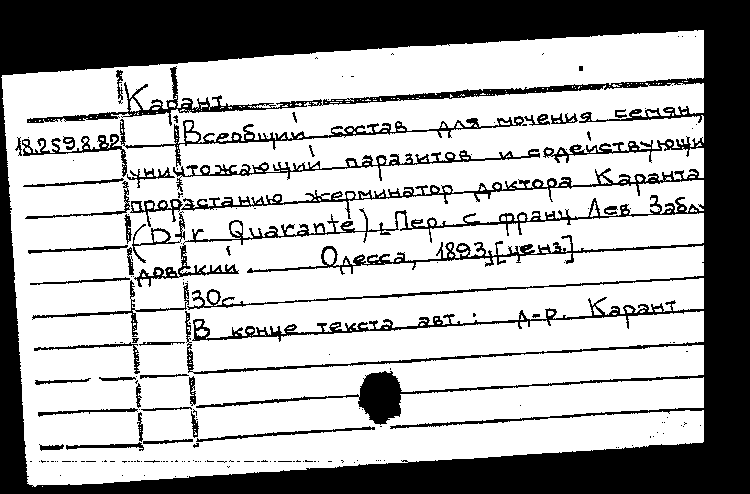 Карант.
18.259.8.82
Всеобщий состав для мочения семян,
уничтожающий паразитов и содействующи
прорастанию жерминатор доктора Каранта
(D-r. Quarante). Пер. с франц. Лев Заблу
довский. Одесса, 1893, [ценз].
30с.
В конце текста авт.: д-р. Карант.